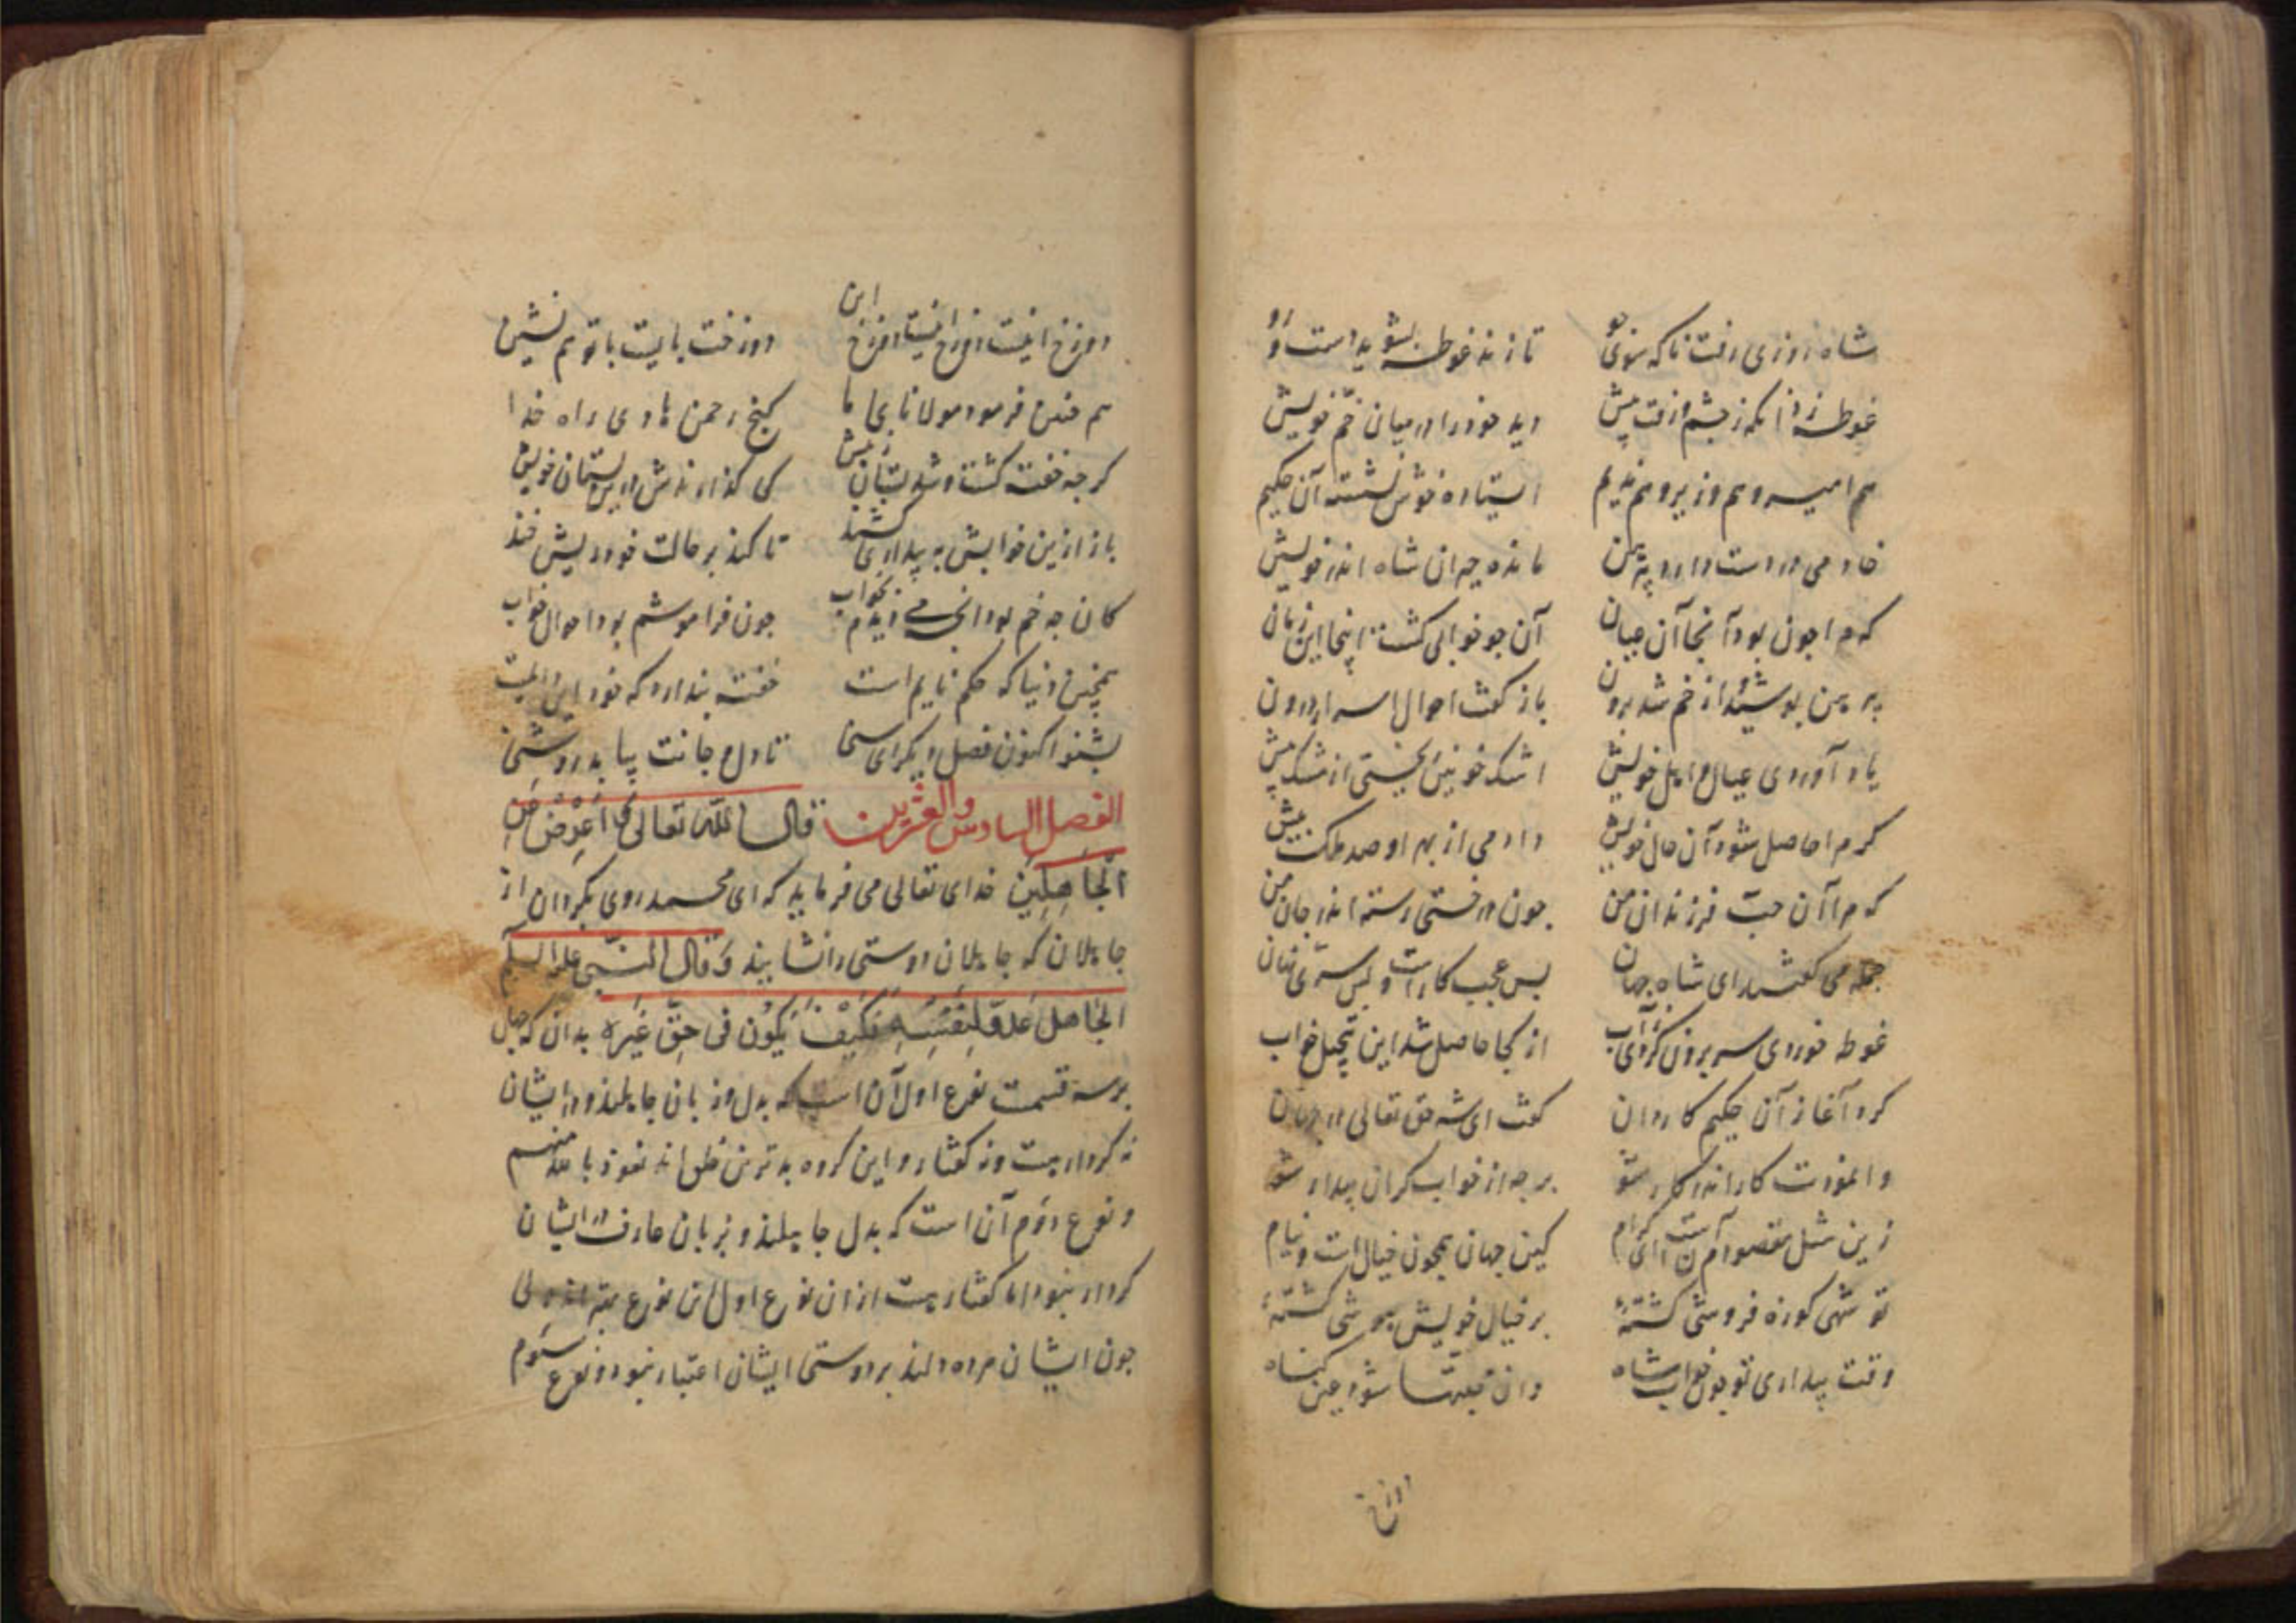 شاه روزی رفت ناکه سوی جو تا زند غوطه بشوید دست و رو
غوطه زد آنکه ز چشم وقت پیش دید خود را در میان خم خویش
هم امیر و هم وزیر و هم ندیم ایستاده خوش نشسته آن حکیم
خادمی در دست دارد پیرهن مانده حیران شاه اندر خویشتن
که مرا چون بود آنجا آن عیان آن چو خوابی کشت اینجا این زمان
پیرهن پوشید از خم شد برون باز کفت احوال اسرار درون
یاد آوردی عیال و اهل خویش اشک خونین ریختی از مشک پیش
کر مرا حاصل شود آن حال خویش دادمی از بهر او صد ملکت بیش
که مرا آن حب فرزندان من چون درختی رسته اندر جان من
جمله می کفتند ای شاه جهان بس عجب کارست و بس سری نهان
غوطه خوردی سر برون کردی ز آب از کجا حاصل شد این تخیل خواب
کرد آغاز آن حکیم کاردان کفت ای شه حق تعالی در جهان
وانمودت کار اندر کار شو برجه از خواب کران بیدار شو
زین مثل مقصود آمن است ای کرام کین جهان همچون خیال است و نیام
تو شهی کوزه فروشی کشتهٔ بر خیال خویش شی کشتهٔ
وقت بیداری تو چون خواب شاه وان تعبها شود عین کناه
دوزخ
دوزخ اینست دوزخ اینست دوزخ این دوزخت بایست با تو هم نشین
هم چنین فرمود مولانای ما کنج رحمن هادی راه خدا
کرچه خفته کشت و شد نسیان ز پیش کی کذارندش درین نسیان خویش
باز ازین خوابش به بیداری کشند تا کند بر حالت خود ریش خند
کان چه غم بود آنچه می دیدم بخواب چون فراموشم بود احوال خواب
همچنین دنیا که حکم نایم است خفته پندارد که خود این دایمست
بشنو اکنون فصل دیکر ای سخا تا دل و جانت بیابد روشنا
الفصل السادس والعشرین قال الله تعالی وَاَعْرِضْ عَنِ
الْجَاهِلِین خدای تعالی می فرماید که ای محمد روی بکردان از
جاهلان که جاهلان دوستی را نشایند وَقال النبی علیه السلام
الجَاهل عَدوّ لِنفسِهِ فکیْفَ یَکُون فی حقّ غَیره بدان که جهل
بر سه قسمت نوع اول آن است که بدل و زبان جاهلند و در ایشان
نه کردارست و نه کفتار و این کروه بدترین خلق اند نعوذ بالله منهم
و نوع دوم آن است که بدل جاهلند و بزبان عارف در ایشان
کردار نبود اما کفتارست از ان نوع اول این نوع بهتر اند ولی
چون ایشان مرده دلند بر دوستی ایشان اعتبار نبود و نوع سوم